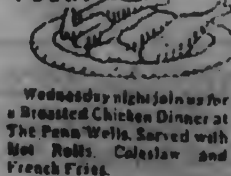 Wednesday night join us for
a Broasted Chicken Dinner at
The Penn Wells. Served with
Hot Rolls, Coleslaw and
French Fries.